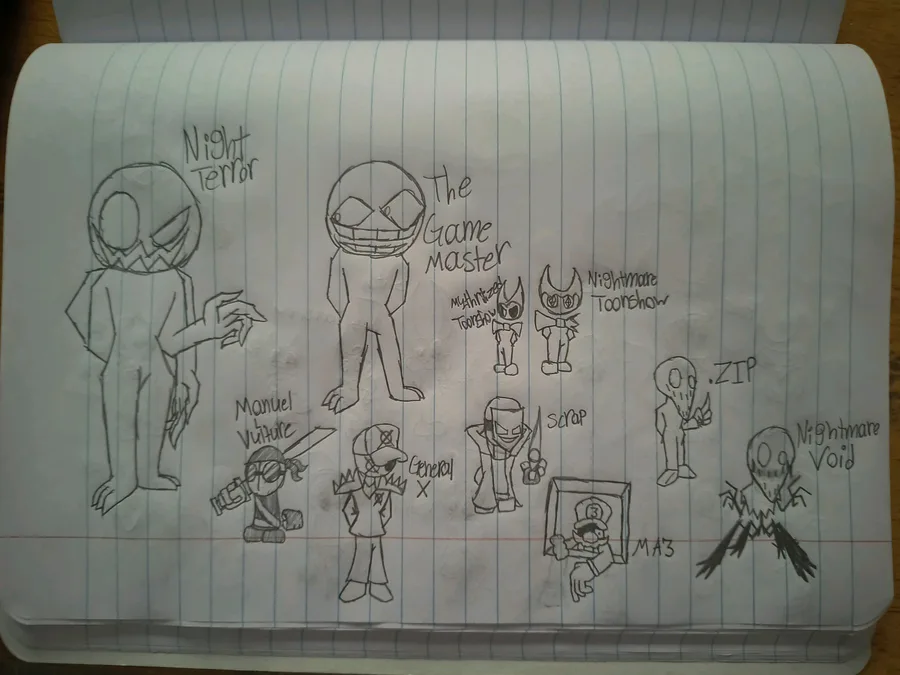 Night
Terror
The
Game
Master
Toonshow
Nightmare
Toonshow
.ZIP
Manuel
Vulture
General
X
Scrap
Nightmare
Void
3
MA3